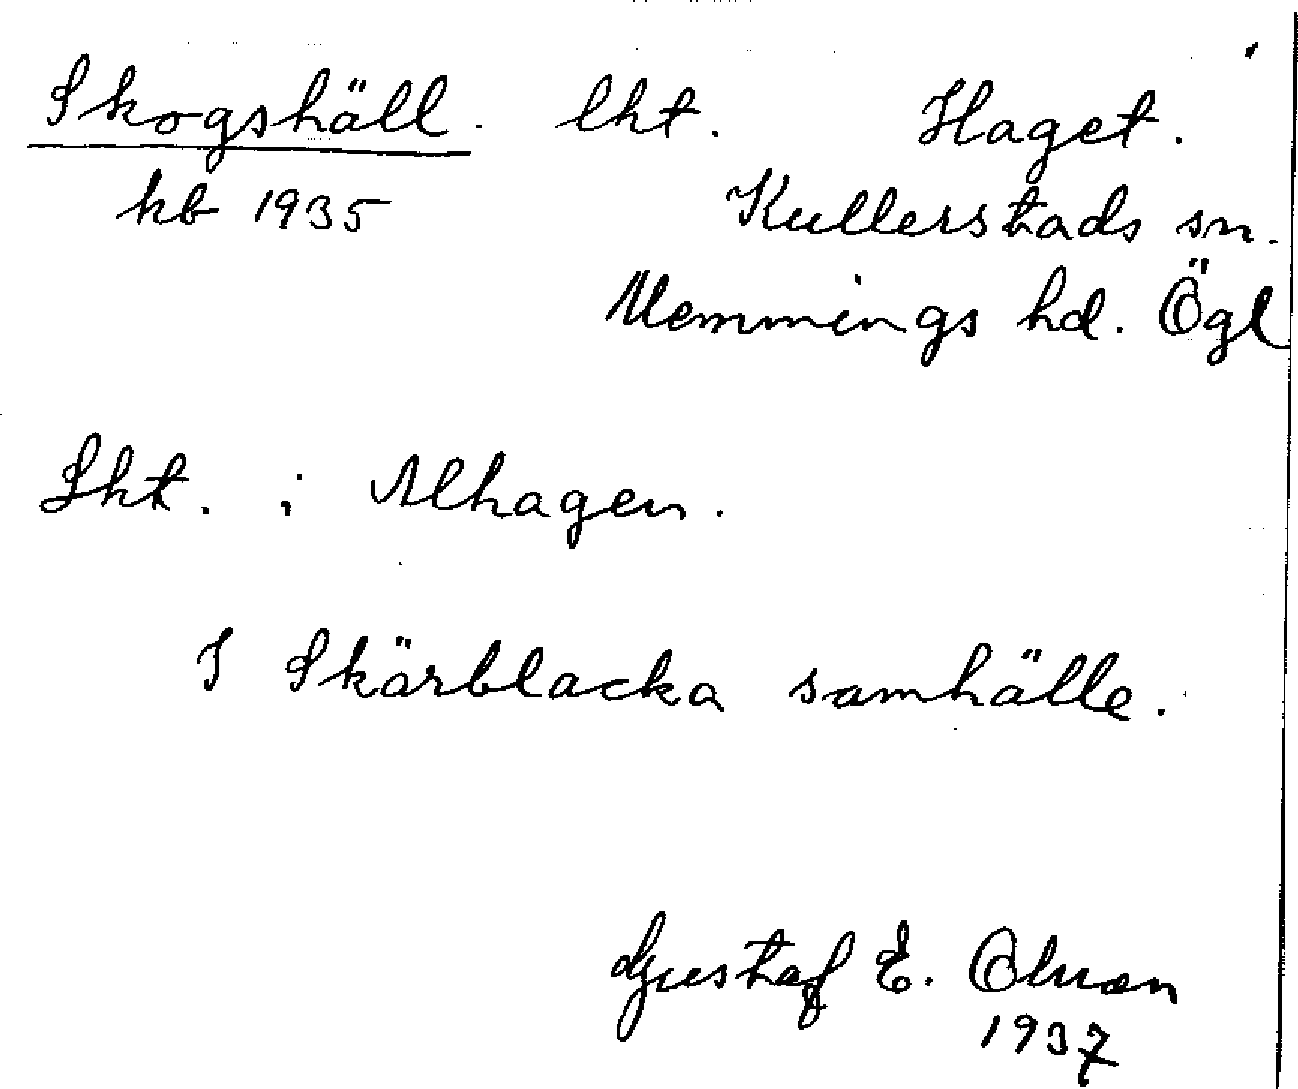 Skogshäll. lht. Haget.
kb 1935 Kullerstads sn.
Memmings hd. Ögl
Lht. i Alhagen.
I Skärblacka samhälle.
Gustaf E. Olsson
1937